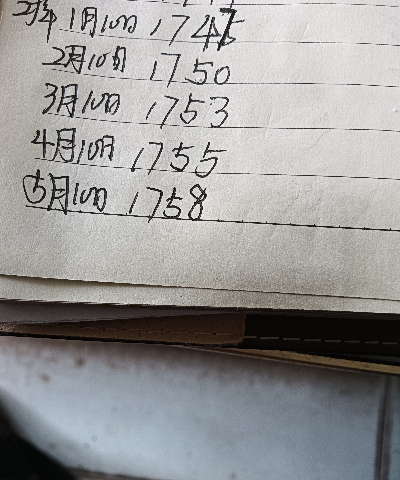 1月10日 1747
2月10日 1750
3月10日 1753
4月10日 1755
5月10日 1758